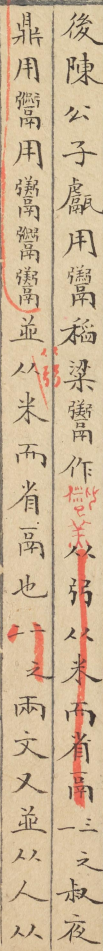 後陳公子甗用鬻稻粱鬻作从弜从米而省鬲三之叔夜
鼎用用並从米而省鬲也一之兩文又並从人从
从弜